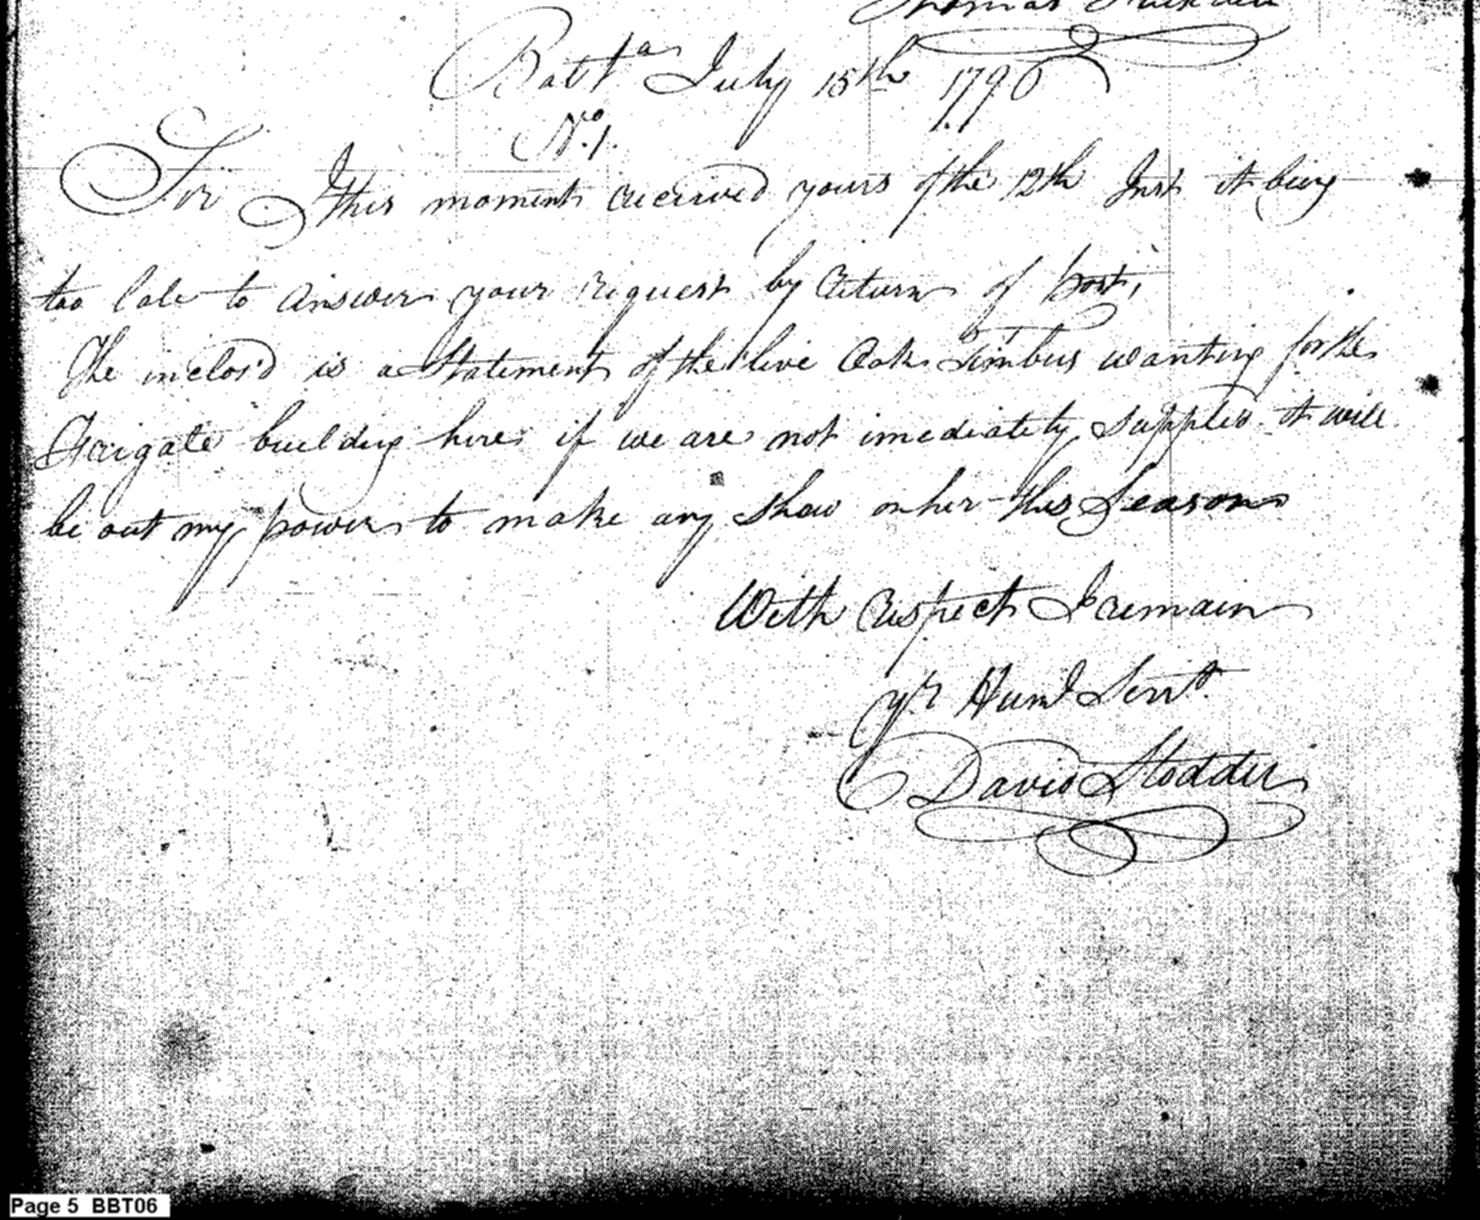 Thomas
Balt.a July 15th 1796
No. 1.
Sir I this moment received yours of the 12th Inst it being
too late to answer your request by return of post,
The inclos'd is a Statement of the live Oak Timbers wanting for the
Fraigate building here if we are not imediately supplied it will
be out my power to make any show on her this Season
With respect I remain
yr Huml Servt.
David Stodder
Page 5 BBT06